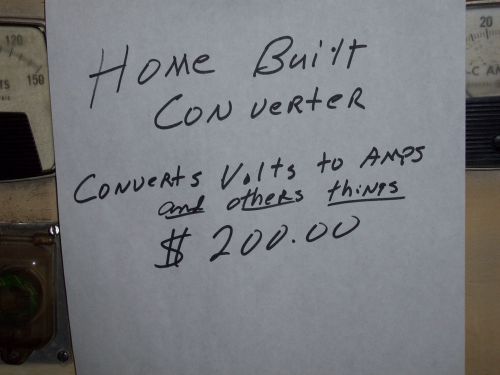 Home Built
Converter
Converts Volts to Amps
and others things
$ 200.00
120
150
20